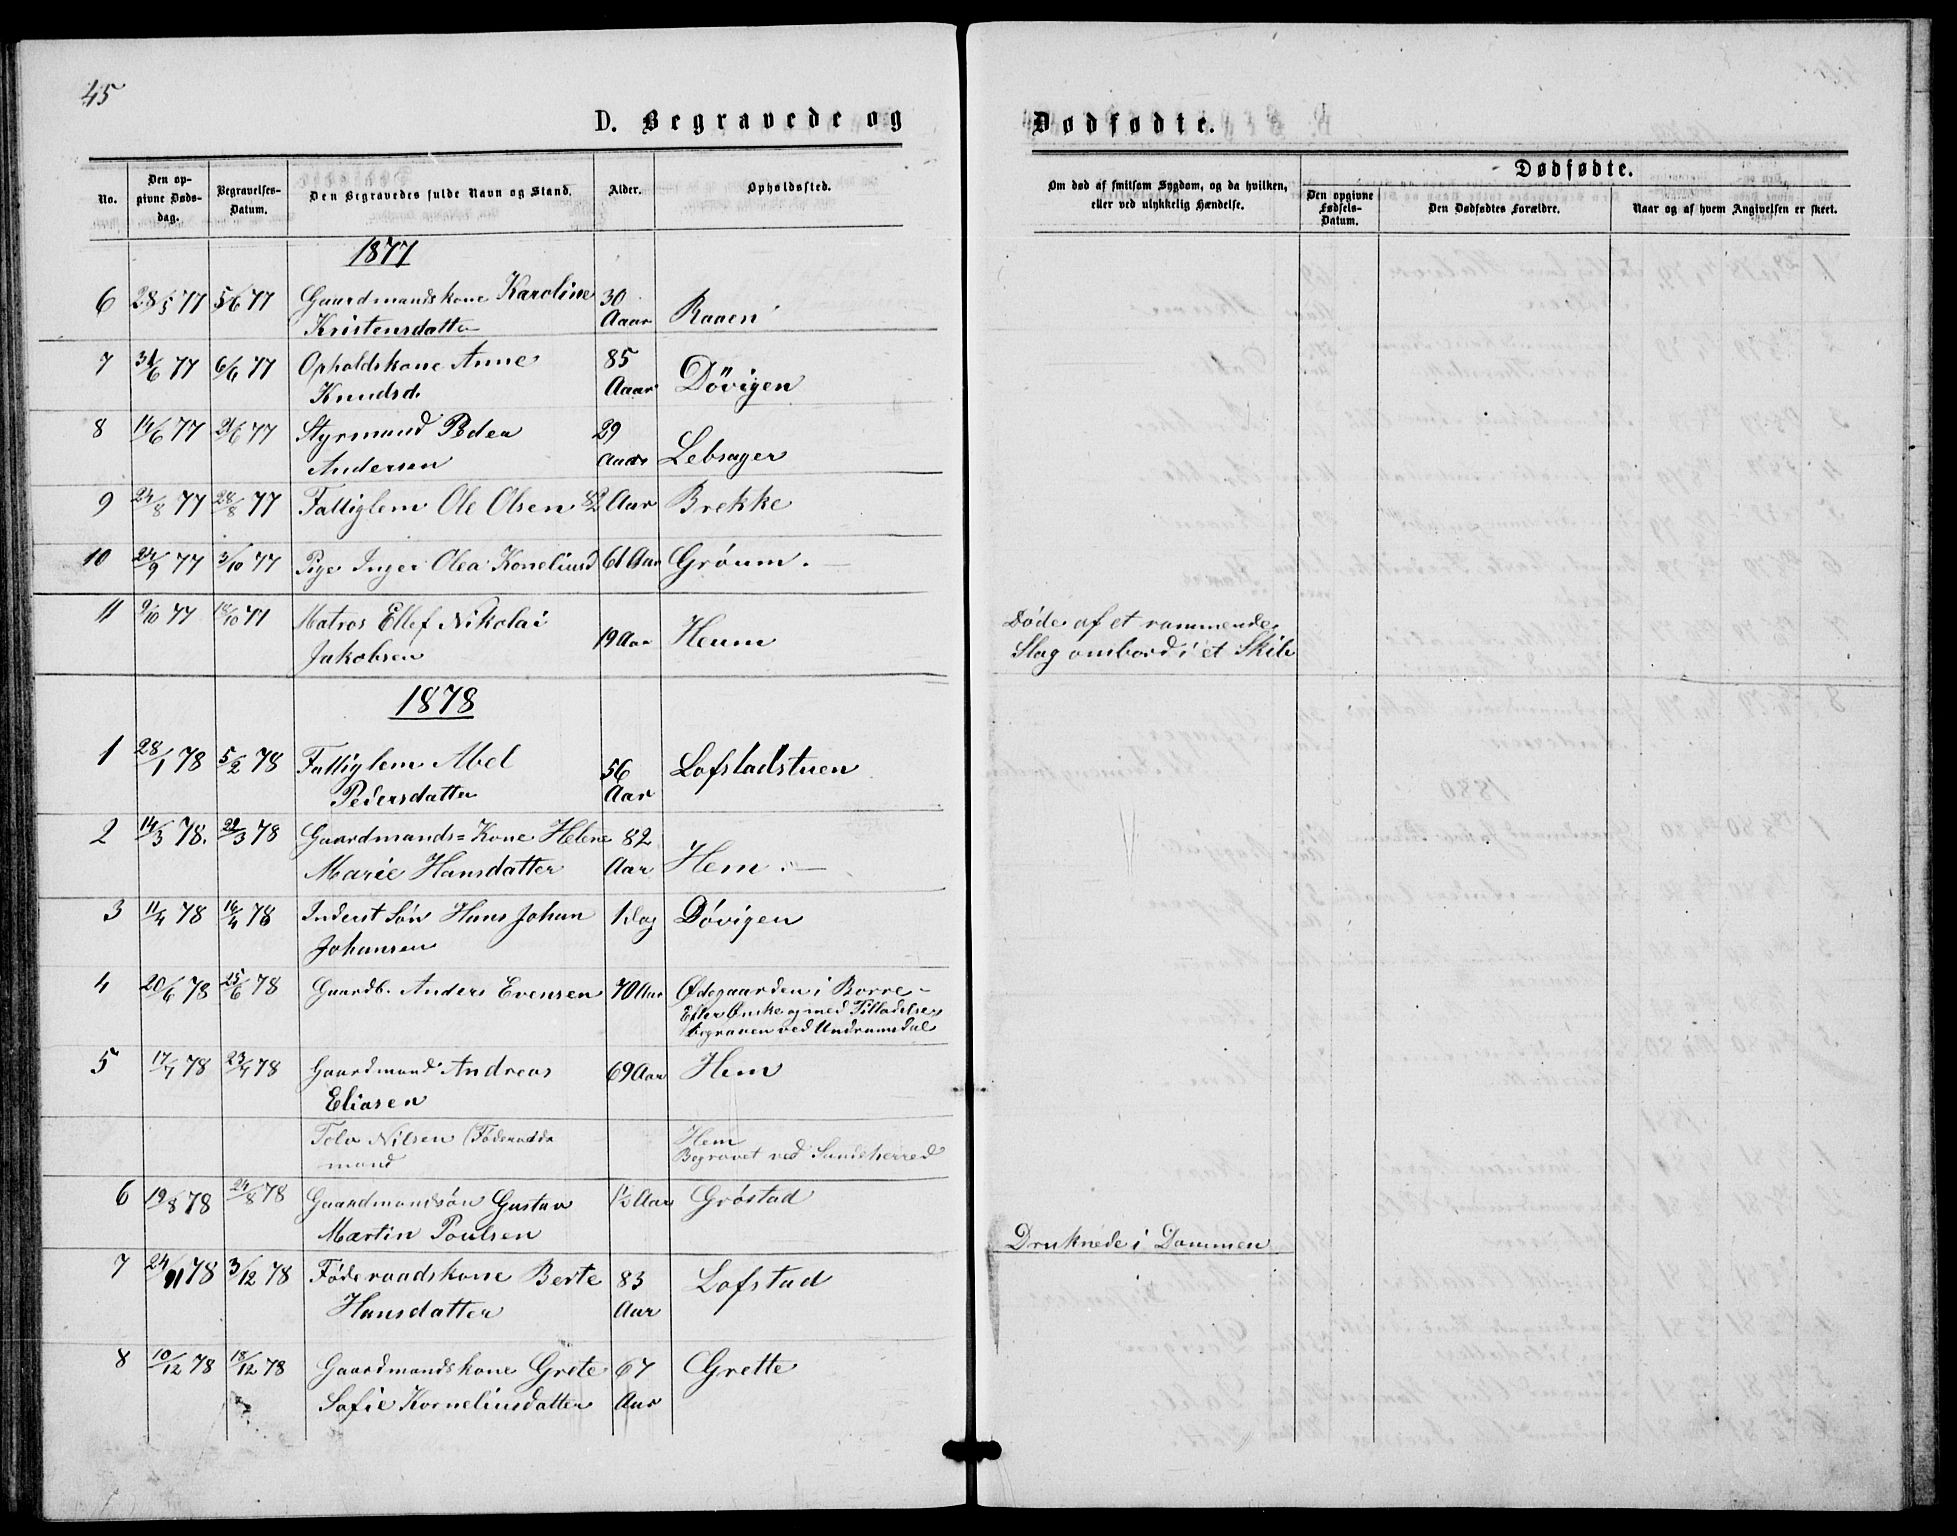 45
D. Begravede og
Dødfødte.
No.
Den op-
givne Døds-
dag.
Begravelses-
Datum.
Den Begravedes fulde Navn og Stand.
Alder.
Opholdssted.
Om død af smitsom Sygdom, og da hvilken,
eller ved ulykkelig Hændelse.
Dødfødte.
Den opgivne
Fødsels-
Datum.
Den Dødfødtes Forældre.
Naar og af hvem Angivelsen er skeet.
1877
6 28/5 77 5/6 77 Gaardmandskone Karoline 30
Kristensdatter Aaar Raaen
7 31/6 77 6/6 77 Opholdskone Anne 85
Knudsd. Aaar Døvigen
8 14/6 77 21/6 77 Styrmand Peder 29
Andersen Aaar Lebsager
9 24/8 77 28/8 77 Fattiglem Ole Olsen 82 Aar Brekke
10 24/9 77 3/10 77 Pige Inger Olea 61 Aar Grøum.
11 9/10 77 18/10 77 Matros Ellef Nikolai
Jakobsen 19 Aar Heum
Døde af et rammende
Slag ombord i et Skib
1878
1 28/1 78 5/2 78 Fattiglem Abel 56 Lofstadstuen
Pedersdatter Aar
2 14/3 78. 22/3 78 Gaardmands=Kone Helene 82
Marie Hansdatter Aar Hem.
3 11/4 78 16/4 78 Inderst Søn Hans Johan 1 dag Døvigen
Johansen
4 20/6 78 25/6 78 Gaardb. Anders Evensen 70 Aar Ødegaarden i Borre
Efter Ønske og med Tilladelse
begraven ved Undrumsdal
5 17/7 78 23/7 78 Gaardmand Andreas 69 Aar Hem
Eliasen
Tolv Nilsen (Føderaads Hem
mand Begravet ved Sandeherred
6 19/8 78 24/8 78 Gaardmandsøn Gustav 1½ Aar Grøstad
Martin Poulsen
Druknede i Dammen
7 24/11 78 3/12 78 Føderaadskone Berte 83 Lofstad
Hansdatter Aar
8 10/12 78 18/12 78 Gaardmandskone Grete 67 Grette
Sofie Korneliusdatter Aar